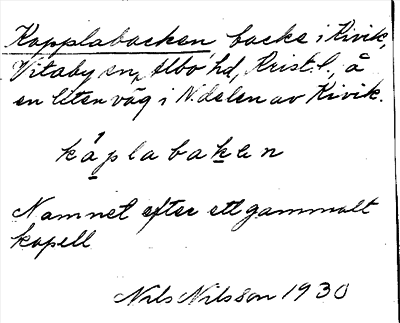 Kapplabacken, backe i Kivik,
Vitaby sn, Albo hd, Krist. l., å
en liten väg i N. delen av Kivik.
káplabaken
Namnet efter ett gammalt
kapell
Nils Nilsson 1930